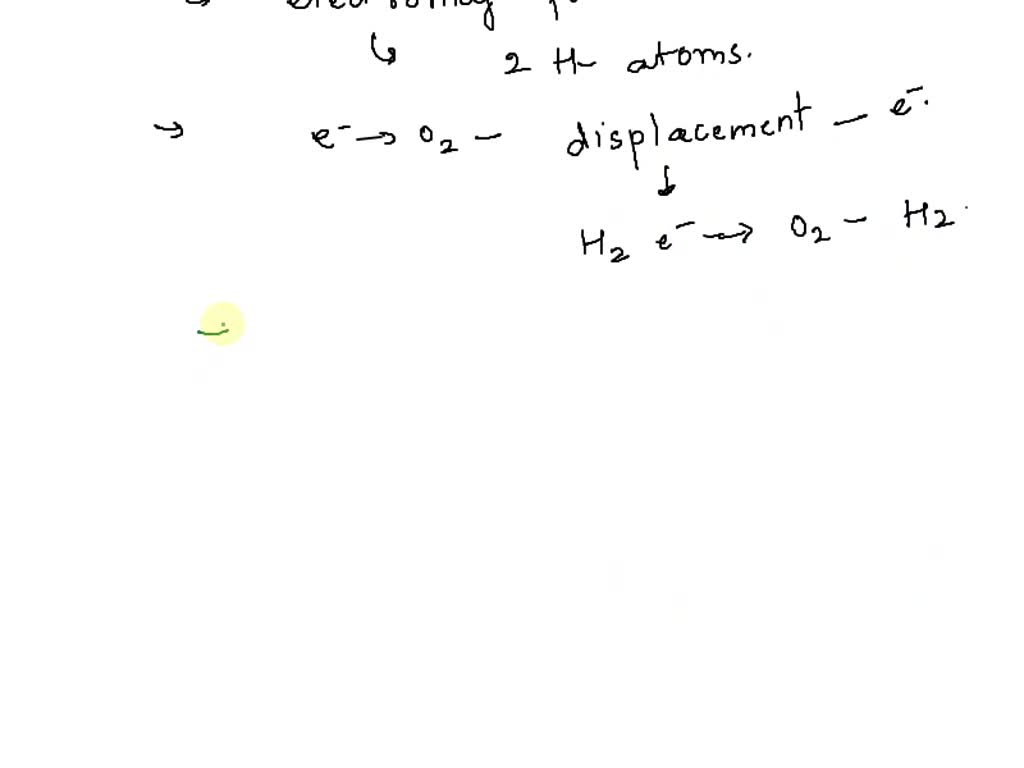 ↳ 2 H- atoms.
→ e⁻ → O₂ - displacement - e⁻.
↓
H₂ e⁻ → O₂ - H₂.